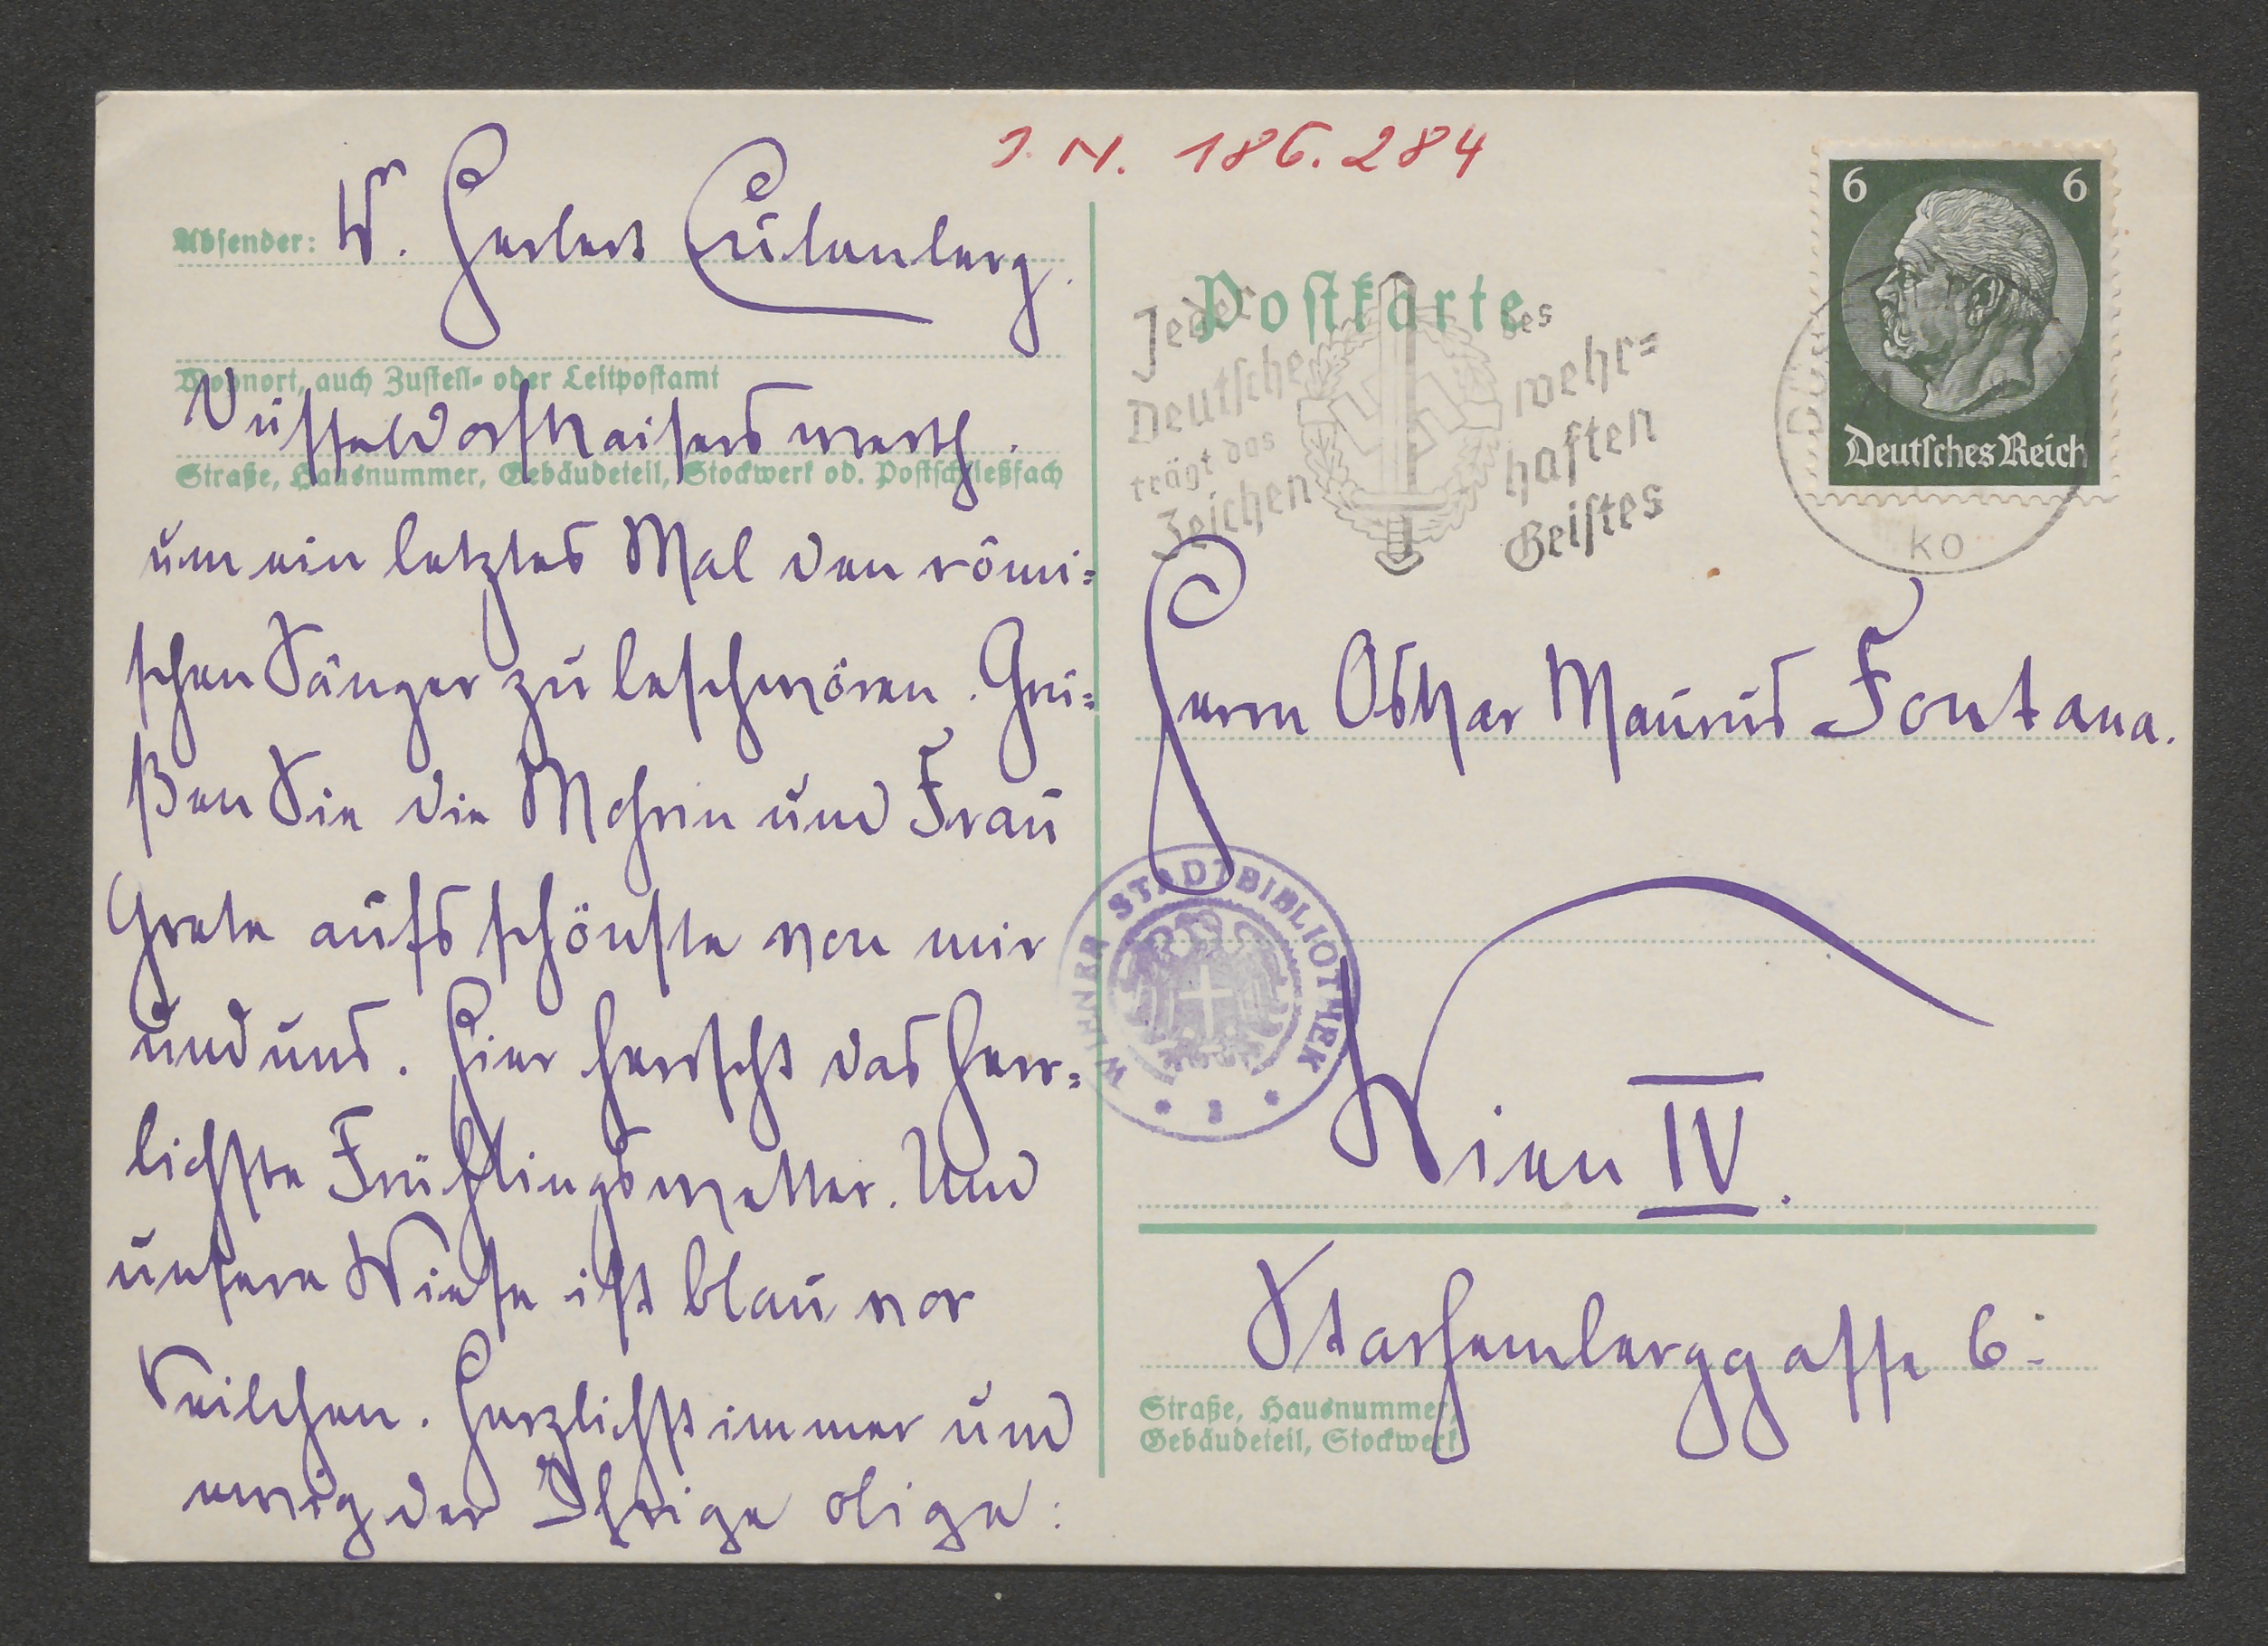 J. N. 186.284
Absender: W. Herbert Eulenberg.
Wohnort, auch Zustell- oder Leitpostamt
Düsseldorf Kaiserswerth.
Straße, Hausnummer, Gebäudeteil, Stockwerk od. Postschließfach
um ein letztes Mal den römi=
schen Sänger zu beschwören. Grü=
ßen Sie die Mohrin und Frau
Grete aufs schönste von mir
und uns. Hier herrscht das herr=
lichste Frühlingswetter. Und
unsere Wiese ist blau vor
Veilchen. Herzlichst immer und
ewig der Ihrige olige:
Postkarte
Jeder
Deutsche
trägt das
Zeichen
des
wehr=
haften
Geistes
6 6
Deutsches Reich
ko
Herrn Oskar Maurus Fontana.
WIENER STADTBIBLIOTHEK
Wien IV.
Starhemberggasse 6.
Straße, Hausnummer,
Gebäudeteil, Stockwerk